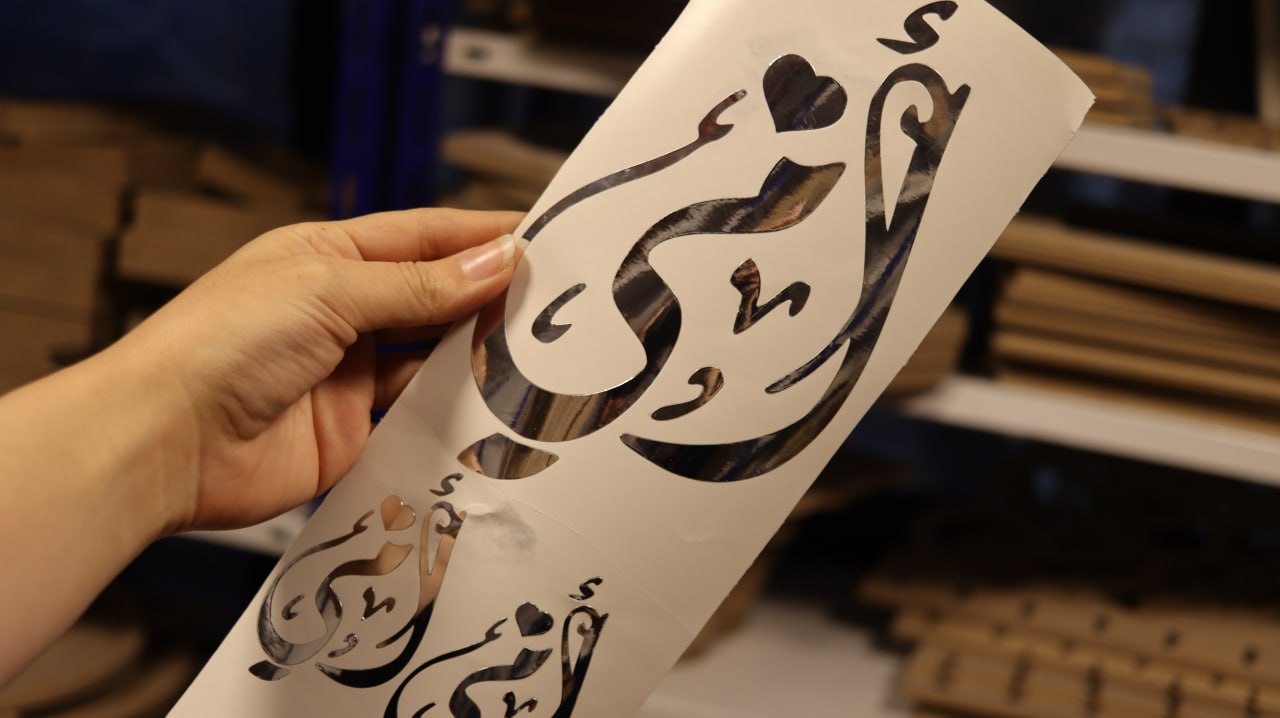 أمي
أمي
أمي